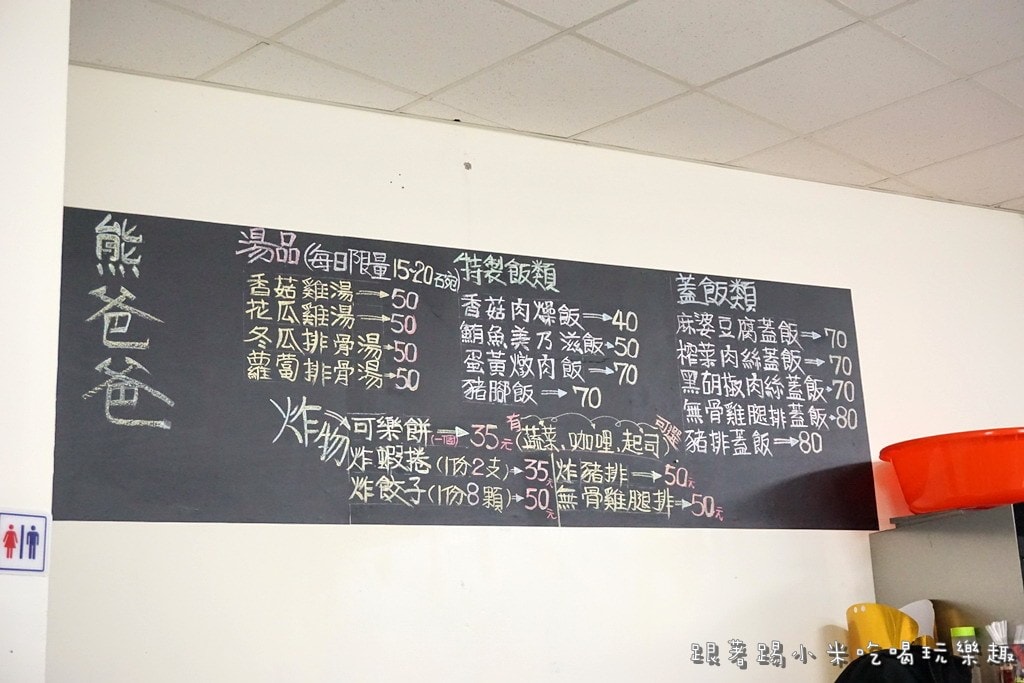 熊爸爸
湯品(每日限量15~20碗)
香菇雞湯→50
花瓜雞湯→50
冬瓜排骨湯→50
蘿蔔排骨湯→50
特製飯類
香菇肉燥飯→40
鮪魚美乃滋飯→50
蛋黃燉肉飯→70
豬腳飯→70
蓋飯類
麻婆豆腐蓋飯→70
榨菜肉絲蓋飯→70
黑胡椒肉絲蓋飯→70
無骨雞腿排蓋飯→80
豬排蓋飯→80
炸物
可樂餅(一個)→35元 有(蔬菜.咖哩.起司)可選
炸蝦捲(1份2支)→35元
炸餃子(1份8顆)→50元
炸豬排→50元
無骨雞腿排→50元
跟著踢小米吃喝玩樂趣